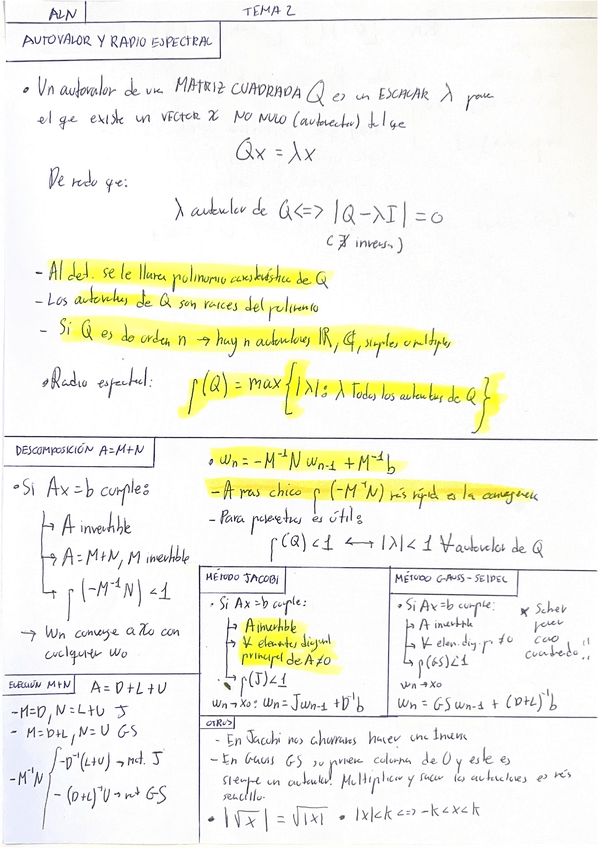 ALN TEMA 2
AUTOVALOR Y RADIO ESPECTRAL
• Un autovalor de una MATRIZ CUADRADA Q es un ESCALAR λ para
el que existe un VECTOR x NO NULO (autovector) tal que
Qx = λx
De modo que:
λ autovalor de Q <=> |Q-λI| = 0
(∄ inversa)
- Al det. se le llama polinomio característico de Q
- Los autovalores de Q son raíces del polinomio
- Si Q es de orden n → hay n autovalores ℝ, ℂ, simples o múltiples
• Radio espectral: ρ(Q) = max {|λ|: λ Todos los autovalores de Q}
DESCOMPOSICIÓN A=M+N
• Si Ax=b cumple:
↳ A invertible
↳ A=M+N, M invertible
↳ ρ(-M⁻¹N) < 1
→ Wn converge a x0 con
cualquier w0
• wn = -M⁻¹N wn-1 + M⁻¹b
- A mas chico ρ(-M⁻¹N) más rápida es la convergencia
- Para parámetros es útil:
ρ(Q) < 1 ⟷ |λ| < 1 ∀ autovalor de Q
ELECCIÓN M+N A = D+L+U
- M=D, N=L+U J
- M=D+L, N=U GS
- M⁻¹N
- D⁻¹(L+U) → met. J
- (D+L)⁻¹U → met GS
MÉTODO JACOBI
• Si Ax=b cumple:
↳ A invertible
↳ ∀ elementos diagonal
principal de A≠0
↳ ρ(J)<1
wn→x0: wn = Jwn-1 + D⁻¹b
MÉTODO GAUSS-SEIDEL
• Si Ax=b cumple:
↳ A invertible
↳ ∀ elem. diag. p. ≠0
↳ ρ(GS)<1
wn→x0
wn = GS wn-1 + (D+L)⁻¹b
* Saber
hacer
caso
cuadrado!!
OTROS
- En Jacobi nos ahorramos hacer una inversa
- En Gauss GS su primera columna de 0 y este es
siempre un autovalor. Multiplicar y sacar los autovalores es más
sencillo.
• |√x| = √|x| • |x|<k <=> -k<x<k